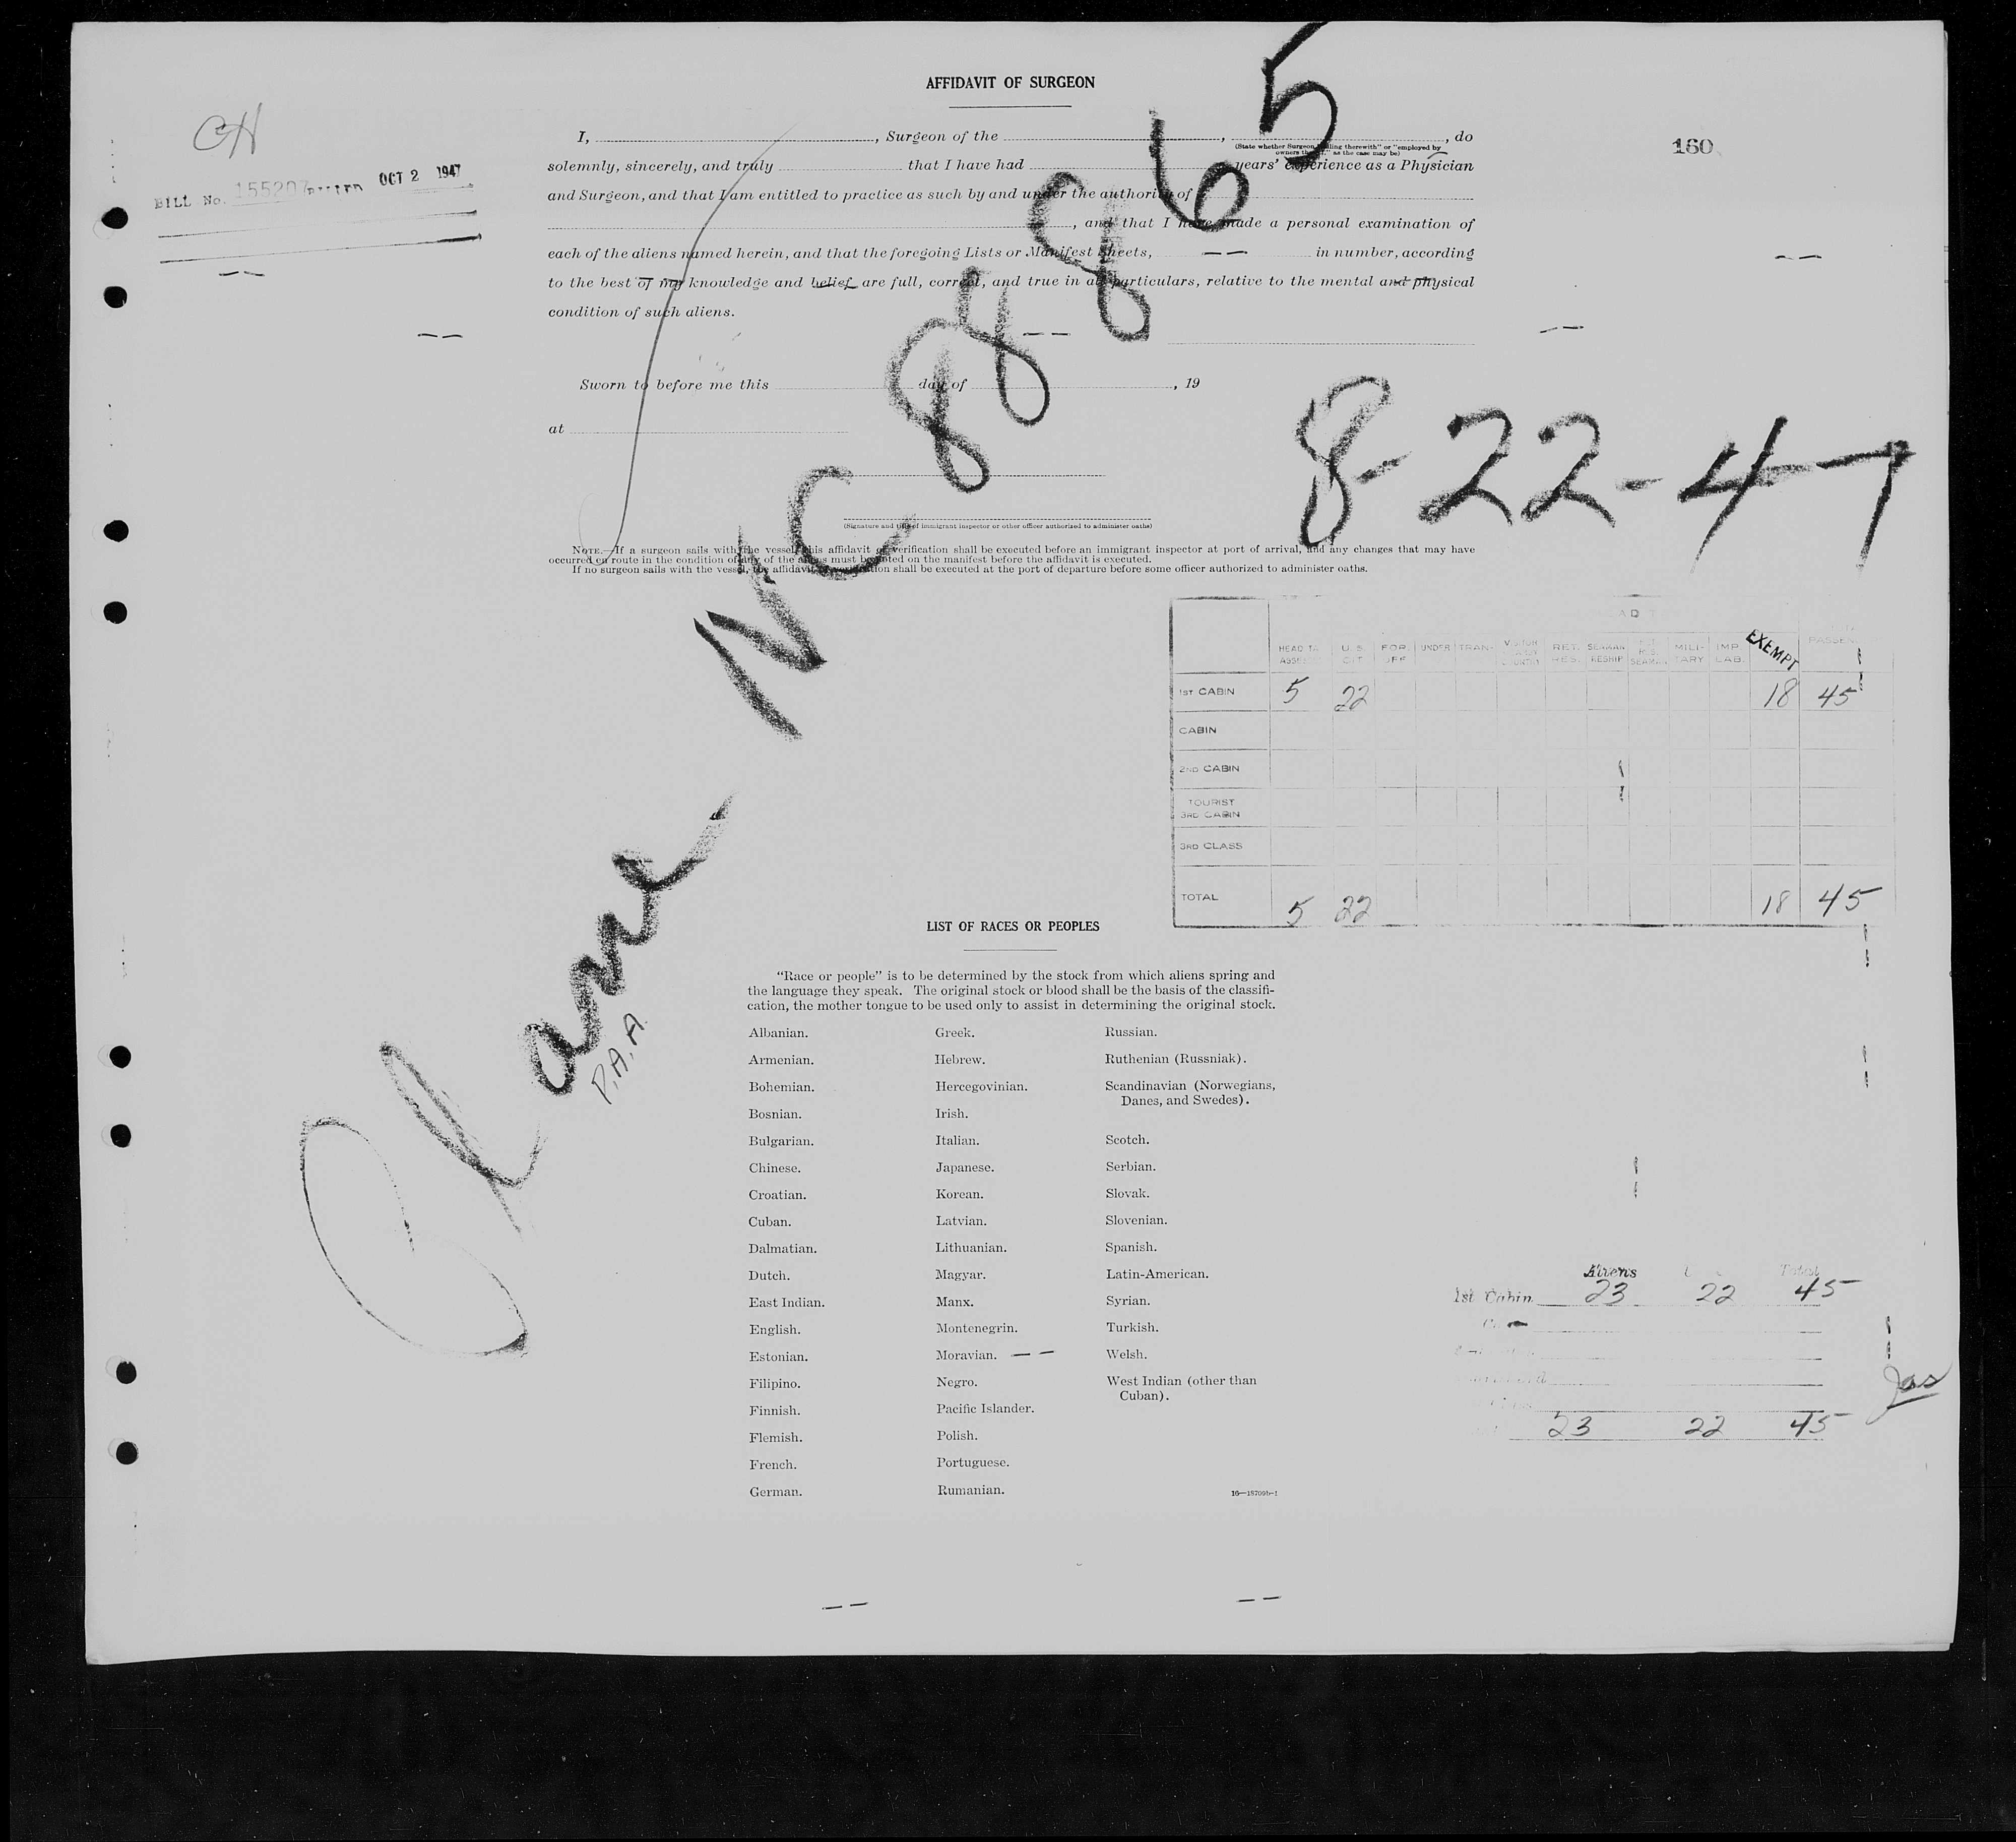 AFFIDAVIT OF SURGEON
CH
160
I, , Surgeon of the , , do
(State whether Surgeon sailing therewith" or "employed by
owners thereof," as the case may be)
solemnly, sincerely, and truly that I have had years' experience as a Physician
BILL No. 155207 OCT 2 1947
and Surgeon, and that I am entitled to practice as such by and under the authority of
, and that I have made a personal examination of
each of the aliens named herein, and that the foregoing Lists or Manifest Sheets, in number, according
to the best of my knowledge and belief are full, correct, and true in all particulars, relative to the mental and physical
condition of such aliens.
Sworn to before me this day of , 19
at
(Signature and title of immigrant inspector or other officer authorized to administer oaths)
NOTE.—If a surgeon sails with the vessel, this affidavit or verification shall be executed before an immigrant inspector at port of arrival, and any changes that may have
occurred en route in the condition of any of the aliens must be noted on the manifest before the affidavit is executed.
If no surgeon sails with the vessel, the affidavit or verification shall be executed at the port of departure before some officer authorized to administer oaths.
Plane NC 88865
P.A.A.
8-22-47
HEAD TAX U.S. FOR. UNDER TRAN- RET. SEAMAN MILI- IMP. EXEMPT PASSEN
ASSE CIT OFF RES. RESHIP SEAMAN TARY LAB.
1ST CABIN 5 22 18 45
CABIN
2ND CABIN
TOURIST
3RD CABIN
3RD CLASS
TOTAL 5 22 18 45
LIST OF RACES OR PEOPLES
"Race or people" is to be determined by the stock from which aliens spring and
the language they speak. The original stock or blood shall be the basis of the classifi-
cation, the mother tongue to be used only to assist in determining the original stock.
Albanian.
Armenian.
Bohemian.
Bosnian.
Bulgarian.
Chinese.
Croatian.
Cuban.
Dalmatian.
Dutch.
East Indian.
English.
Estonian.
Filipino.
Finnish.
Flemish.
French.
German.
Greek.
Hebrew.
Hercegovinian.
Irish.
Italian.
Japanese.
Korean.
Latvian.
Lithuanian.
Magyar.
Manx.
Montenegrin.
Moravian.
Negro.
Pacific Islander.
Polish.
Portuguese.
Rumanian.
Russian.
Ruthenian (Russniak).
Scandinavian (Norwegians,
Danes, and Swedes).
Scotch.
Serbian.
Slovak.
Slovenian.
Spanish.
Latin-American.
Syrian.
Turkish.
Welsh.
West Indian (other than
Cuban).
16—15709b-1
Aliens Total
1st Cabin 23 22 45
23 22 45
Jas